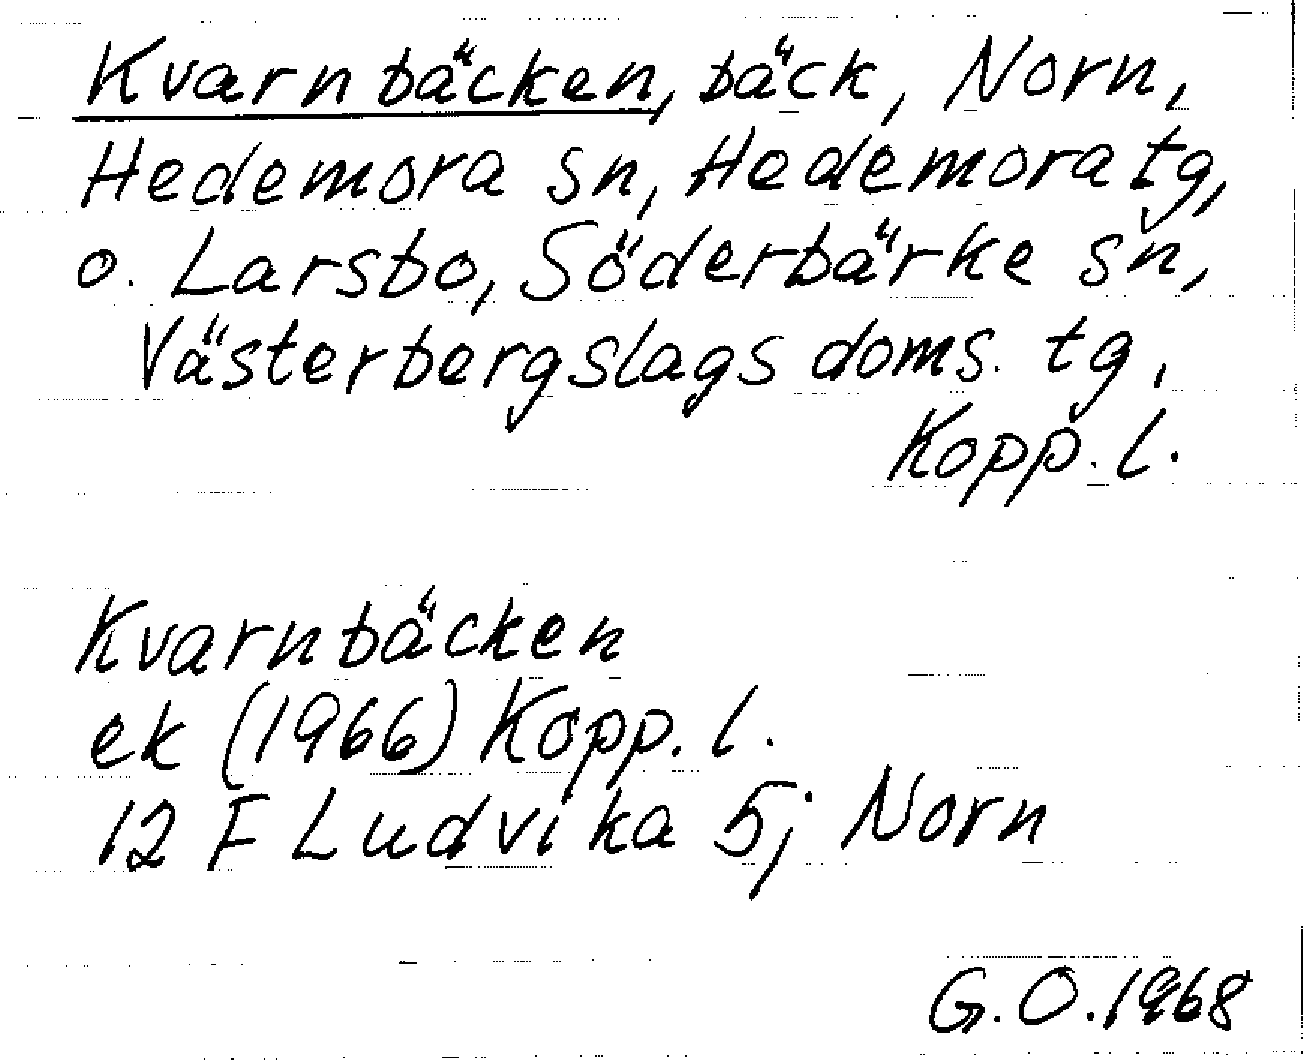 Kvarnbäcken, bäck, Norn,
Hedemora sn, Hedemora tg,
o. Larsbo, Söderbärke sn,
Västerbergslags doms. tg,
Kopp. l.
Kvarnbäcken
ek (1966) Kopp. l.
12 F Ludvika 5j Norn
G.O. 1968